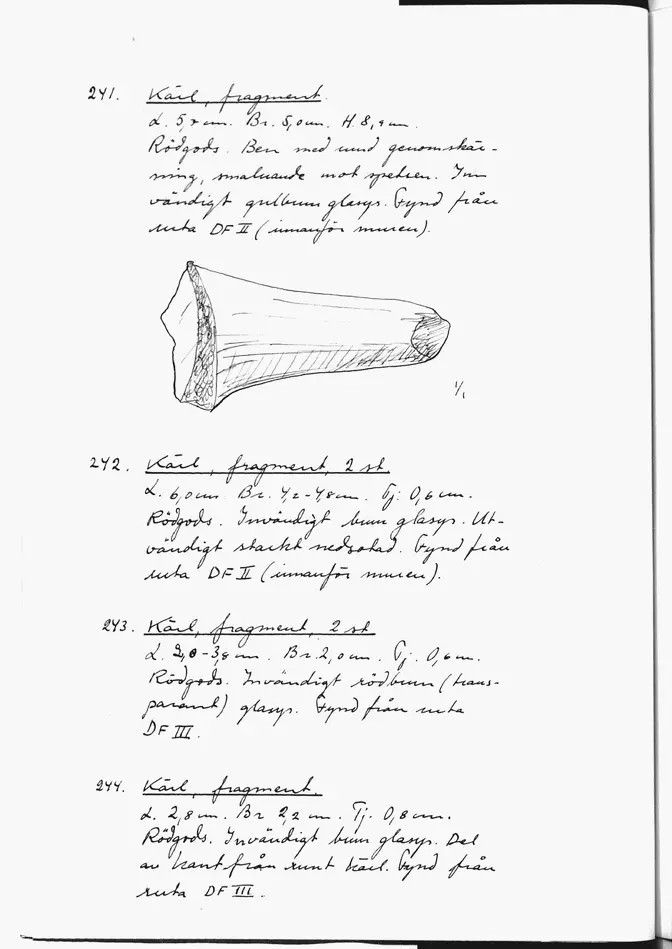 241. Kärl, fragment.
L. 5,7 cm. Br. 5,0 cm. H. 8,9 cm.
Rödgods. Ben med rund genomskär-
ning, smalnande mot spetsen. Inn
vändigt gulbrun glasyr. Fynd från
ruta DF II (innanför muren).
1/1
242. Kärl, fragment, 2 st.
L. 6,0 cm. Br. 4,2-4,8 cm. Tj: 0,6 cm.
Rödgods. Invändigt brun glasyr. Ut-
vändigt starkt nedsotad. Fynd från
ruta DF II (innanför muren).
243. Kärl, fragment, 2 st.
L. 3,8 cm. Br. 2,0 cm. Tj. 0,6 cm.
Rödgods. Invändigt rödbrun (trans-
parant) glasyr. Fynd från ruta
DF III.
244. Kärl, fragment.
L. 2,8 cm. Br 2,2 cm. Tj. 0,8 cm.
Rödgods. Invändigt brun glasyr. Del
av kant från runt kärl. Fynd från
ruta DF III.